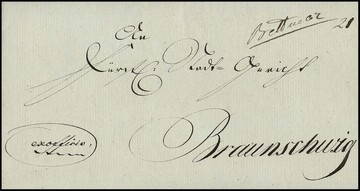 Bettmar 21
An
Fürstl. Stadt-Gericht
exofficio.
Braunschweig